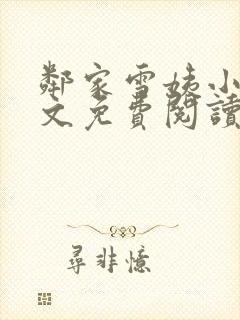 鄰家雪姨小
文免費閱讀
尋非憶